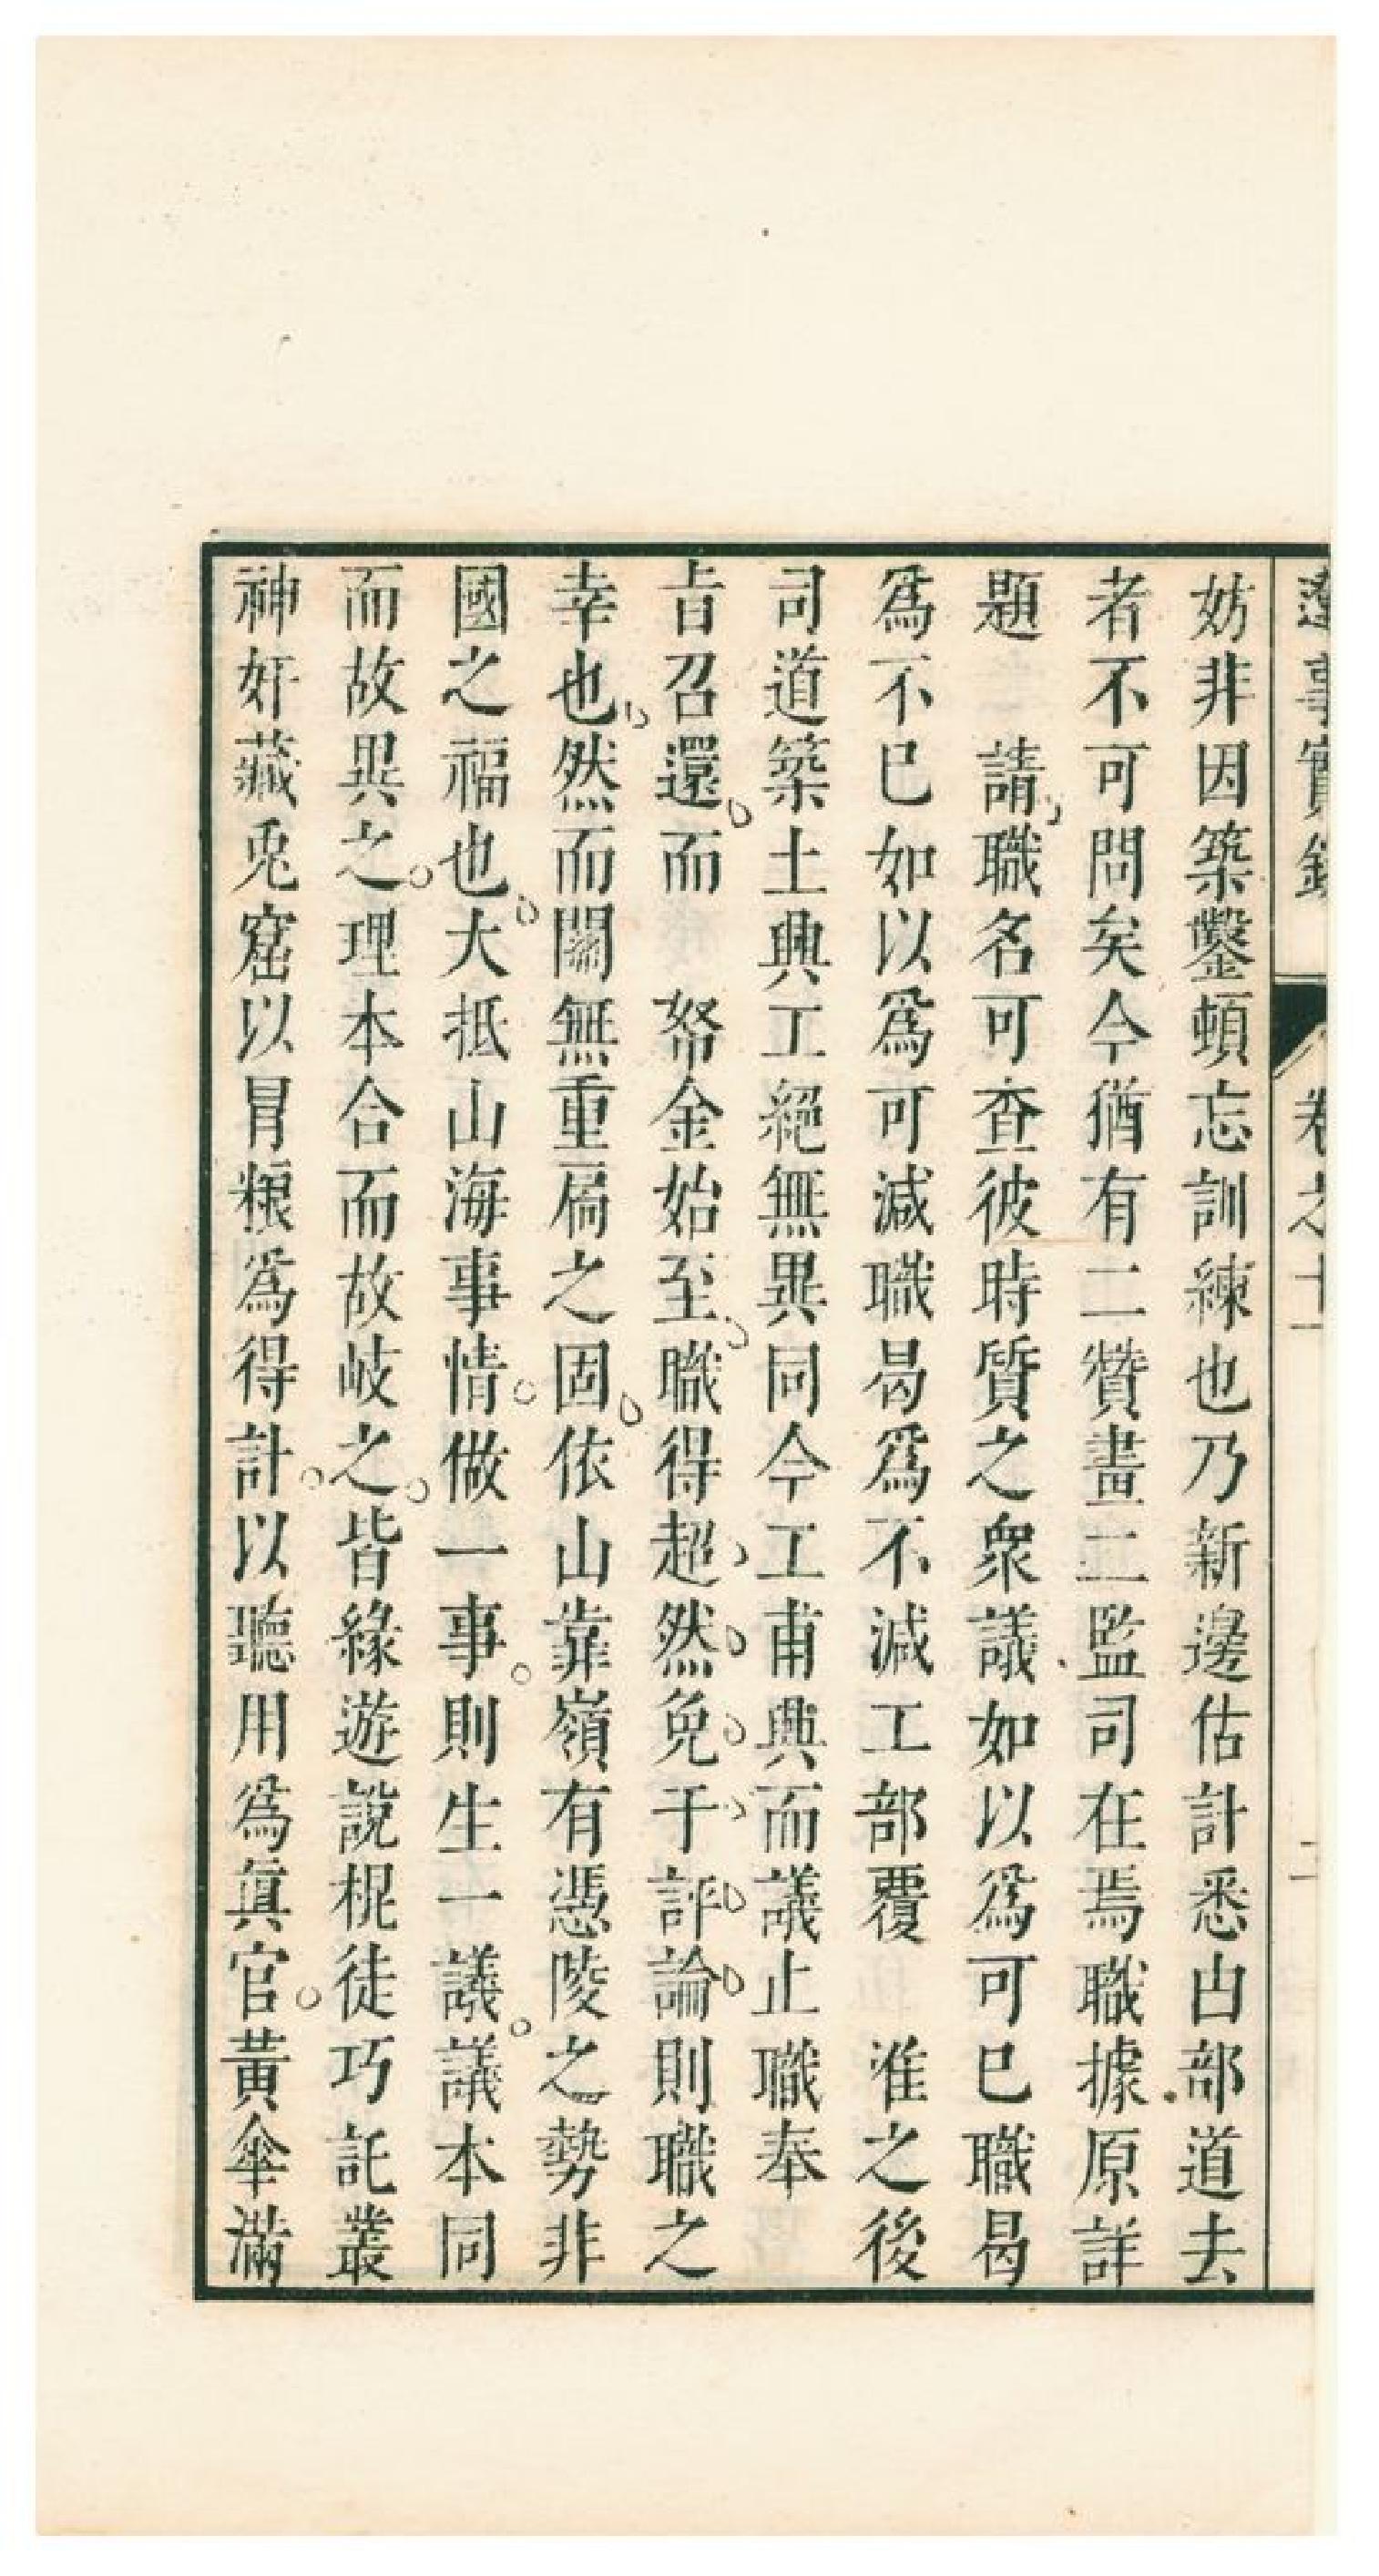 遼事實錄 卷之十一 二
妨非因築鑿頓忘訓練也乃新邊估計悉由部道去
者不可問矣今猶有二贊畫二監司在焉職據原詳
題 請職名可查彼時質之衆議如以爲可已職曷
爲不已如以爲可減職曷爲不減工部覆 准之後
司道築土興工絕無異同今工甫興而議止職奉
旨召還而 帑金始至職得超然免于評論則職之
幸也然而關無重扃之固依山靠嶺有憑陵之勢非
國之福也大抵山海事情做一事則生一議議本同
而故異之理本合而故岐之皆緣遊說棍徒巧託叢
神奸藏兎窟以冒粮爲得計以聽用爲眞官黃傘滿